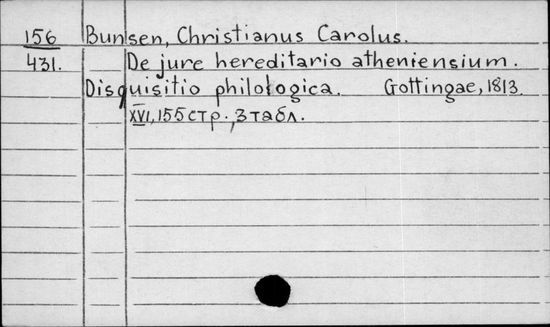 156 Bunsen, Christianus Carolus.
431. De jure hereditario atheniensium.
Disquisitio philologica. Gottingae, 1813.
XVI, 155 стр., 3 табл.